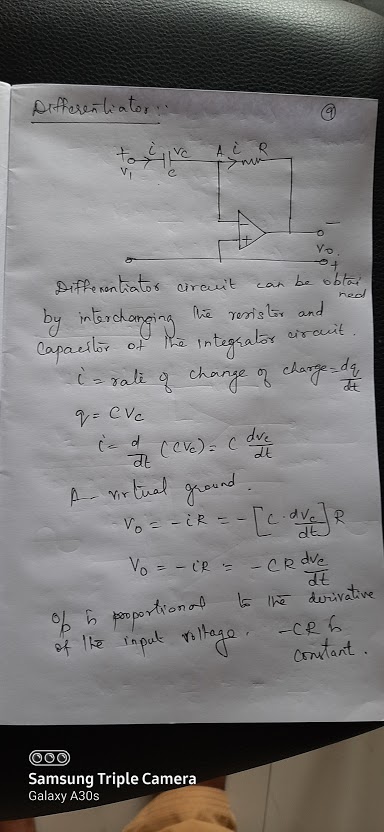 Differentiator:-
9
+ i Vc A i R
V1 C
-
+
-
Vo
+
Differentiator circuit can be obtai
ned
by interchanging the resistor and
Capacitor of the integrator circuit.
i = rate of change of charge = dq/dt
q = CVc
i = d/dt (CVc) = C dvc/dt
A - virtual ground.
Vo = -iR = -[C. dvc/dt]R
Vo = -iR = -CR dvc/dt
o/p is proportional to the derivative
of the input voltage. -CR is
constant.
Samsung Triple Camera
Galaxy A30s